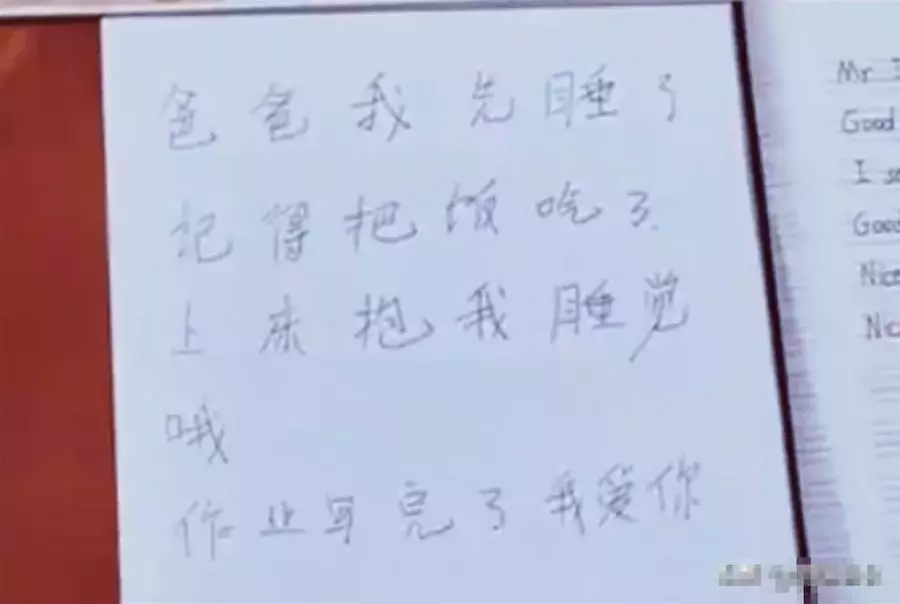 爸爸我先睡了
记得把饭吃了
上床抱我睡觉
哦
作业写完了我爱你
Mr
Good
I
Good
Nice